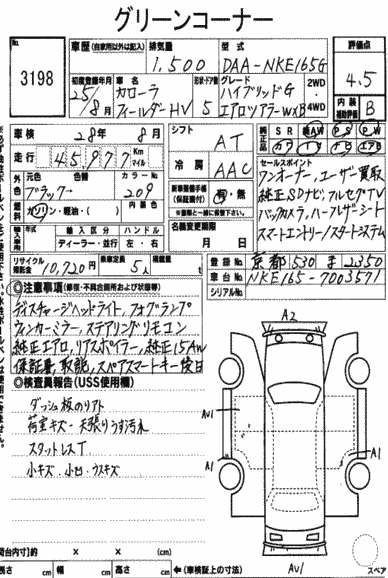 グリーンコーナー
No.
3198
車歴 (自家用以外は記入)
排気量
型式
評価点
1,500
DAA-NKE165G
4.5
初度登録年月
車名
形状・ドア数
グレード
25/8月
カローラ フィールダーHV
5
ハイブリッドG エアロツアラーWXB
2WD・4WD
内装補助評価
B
車検
28年 8月
シフト
AT
純正品
SR 革 AW PS PW
カワ TV ナビ エアB
走行
45,977 Km マイル
冷房
AAC
セールスポイント
ワンオーナー、ユーザー買取
純正SDナビ、フルセグTV
バックカメラ、ハーフレザーシート
スマートエントリー/スタートシステム
外色
元色
色
カラーNo.
ブラック→
209
新車整備手帳(保証書付)
有・無
※名義変更に必要です
燃料
ガソリン・軽油・( )
内装色
輸入車
輸入区分
ハンドル
ディーラー・並行
左・右
名義変更期限
月 日
リサイクル預託金
10,720円
乗車定員
5人
登録No.
京都530ま2350
車台No.
NKE165-7003571
シリアルNo.
◎注意事項(修復・不具合箇所および状態等)
ディスチャージヘッドライト、フォグランプ
ウィンカーミラー、ステアリングリモコン
純正エアロ、リアスポイラー、純正15AW
保証書、取説、スペアスマートキー後日
◎検査員報告(USS使用欄)
ダッシュ板のリアト
荷室キズ・天張りうす汚れ
スタットレスT
小キズ・小凹・ウスキズ
A2
AU1
A1
A1
AU1
スペア
荷台内寸)約 × × (cm)
長さ cm 幅 cm 高さ cm ←(車検証上の寸法)